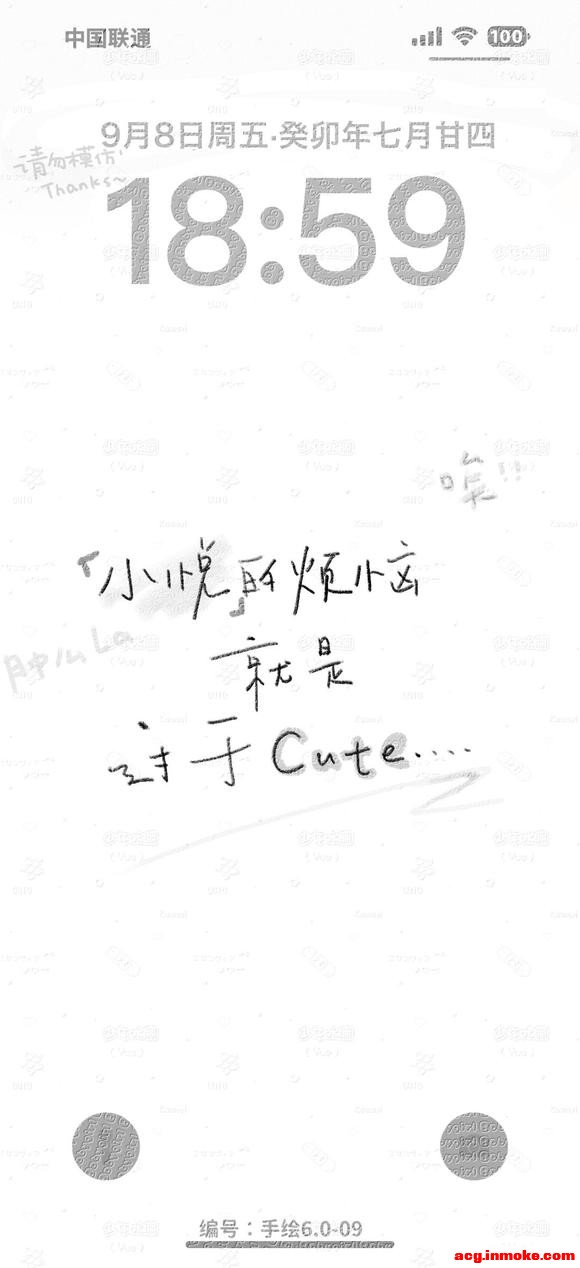 中国联通 100
9月8日周五·癸卯年七月廿四
请勿模仿
Thanks~
18:59
唉!!
「小悦」的烦恼
肿么La
就是
过于Cute.....
编号：手绘6.0-09
acg.inmoke.com